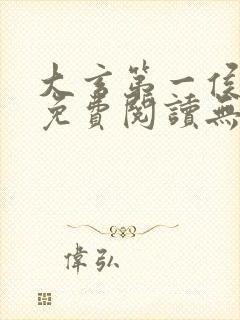 大言第一侯
免費閱讀無
偉弘